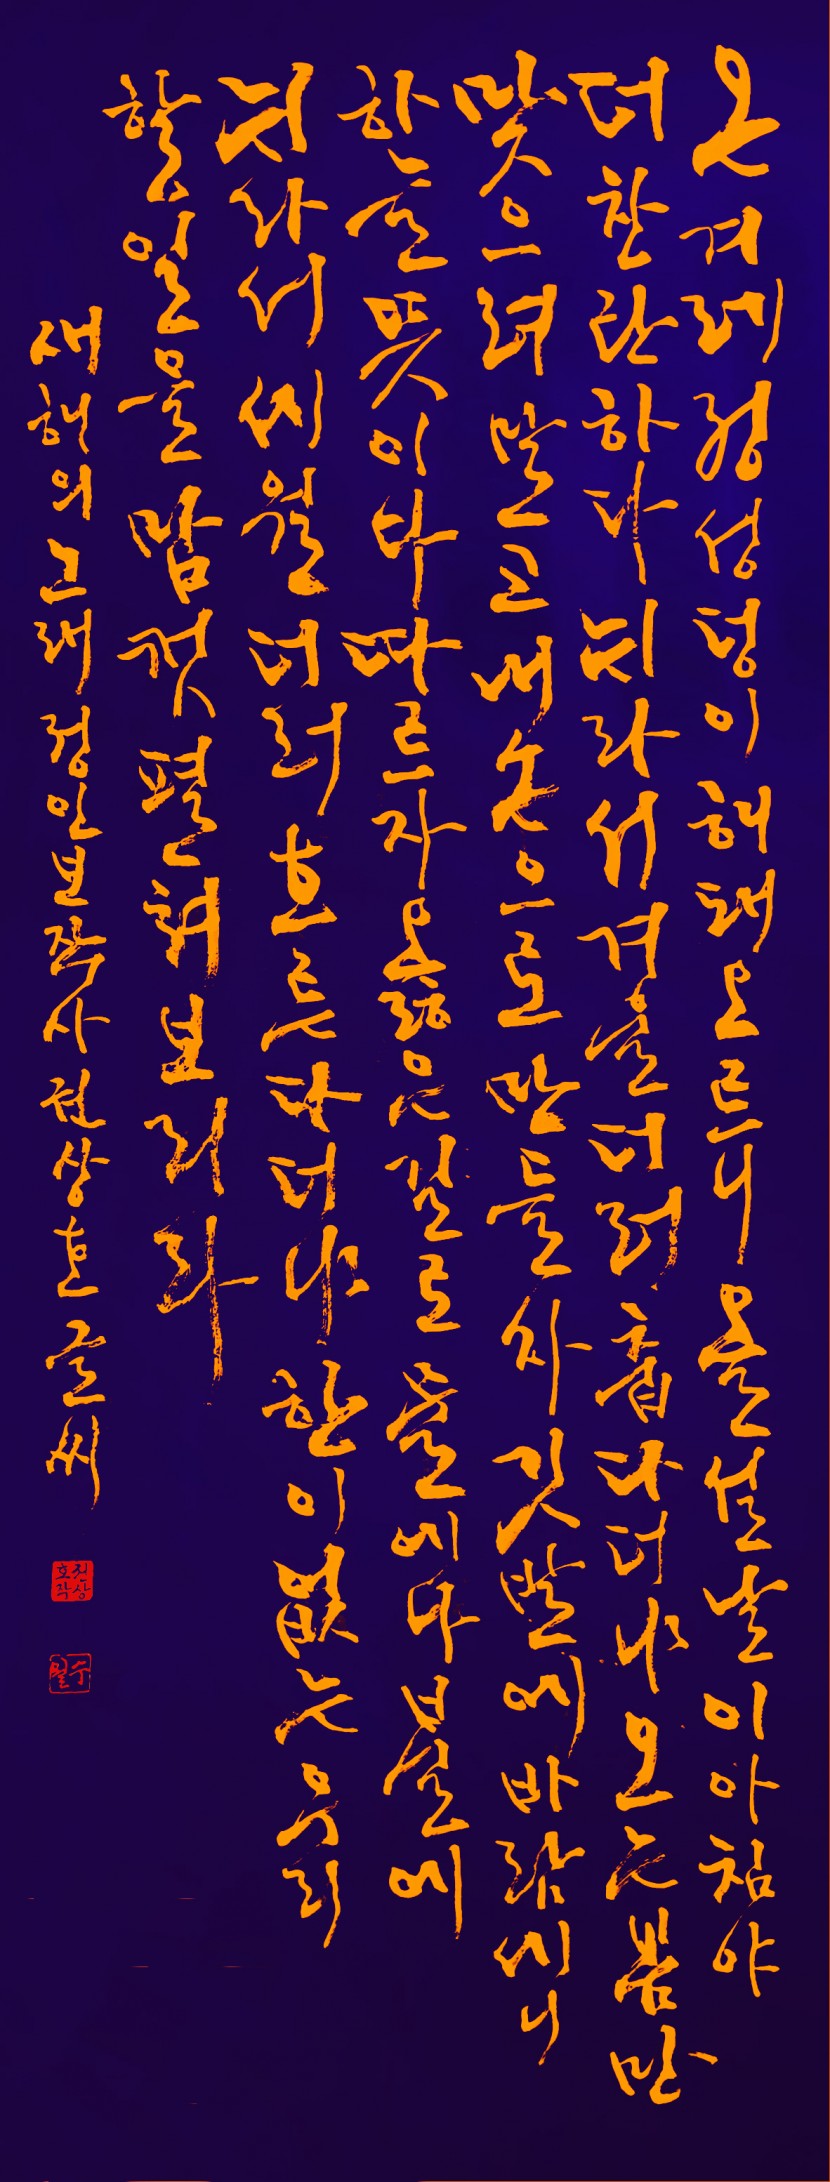 온겨레정성덩이 해돼오르니 올설날이아침야
더찬란하다 뉘라서겨울더러 춥다더냐 오는봄만
맞으려말고 내손으로만들자 깃발에바람세니
하늘뜻이다 따르자옳은길로 물에나불에
뉘라서 세월더러 흐른다더냐 한이없는우리
할일을 맘껏펼쳐보리라
새해의노래 정인보작사 권상호글씨
권상호작